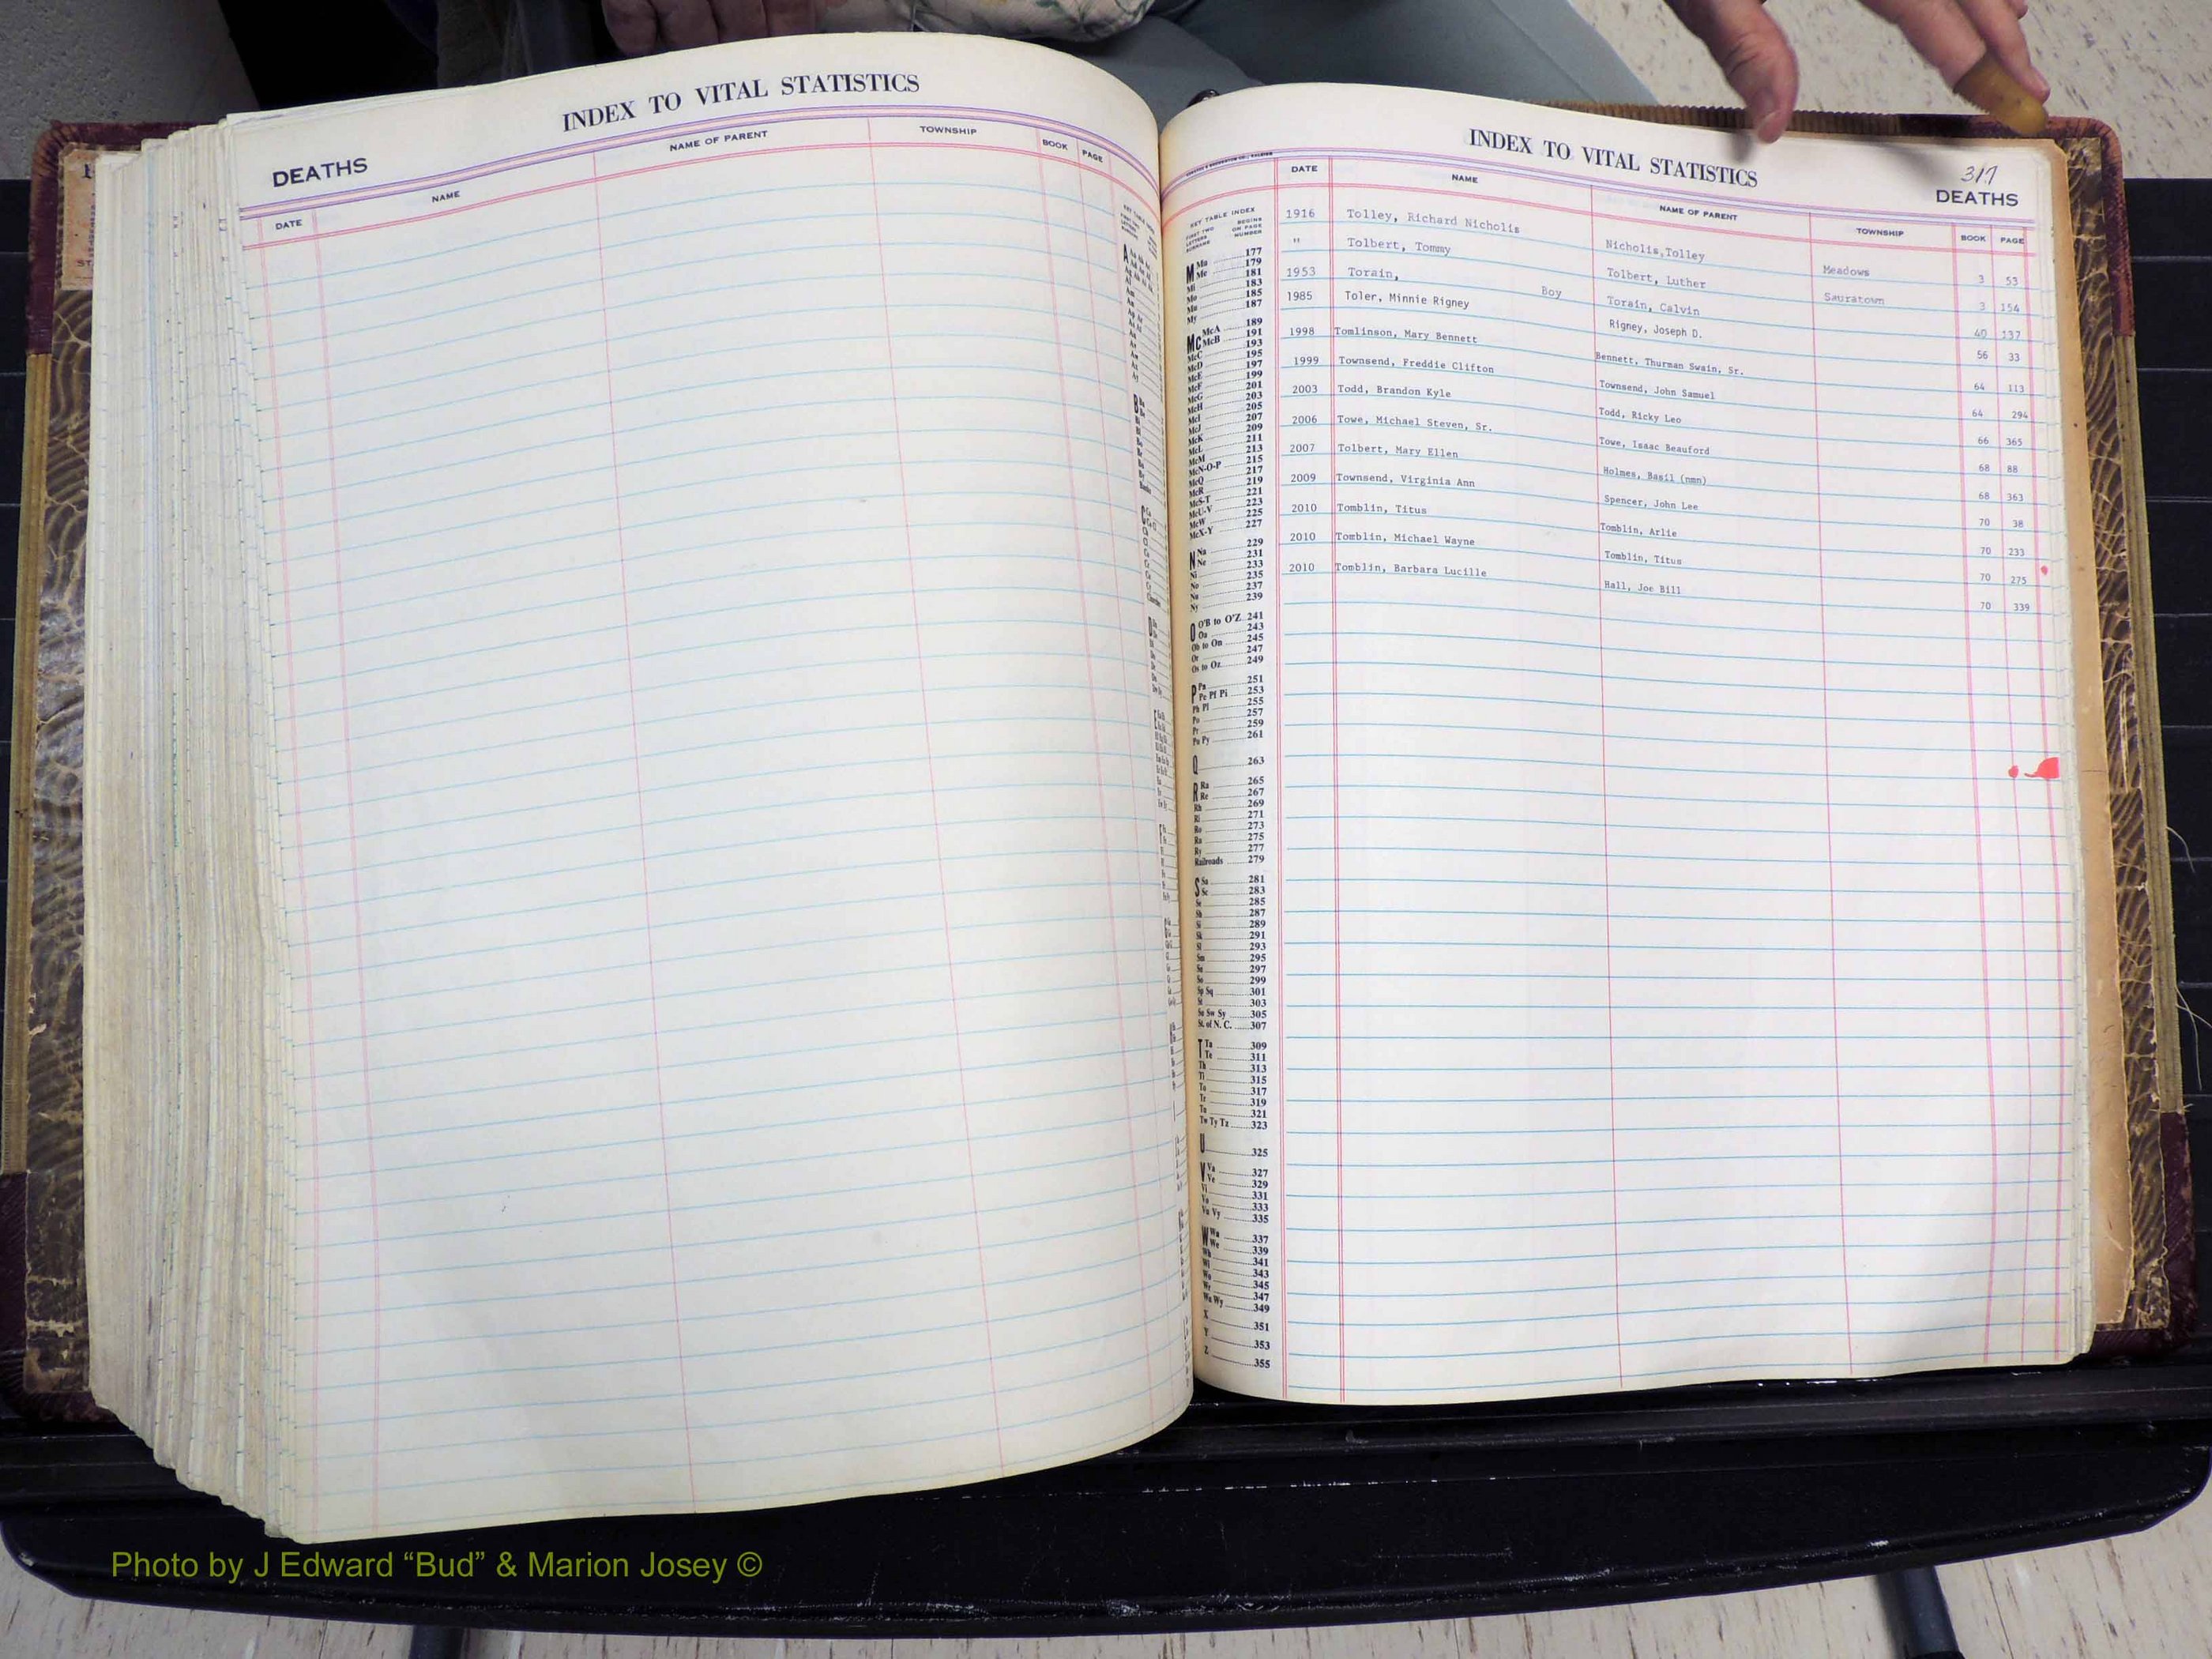 INDEX TO VITAL STATISTICS
DEATHS
DATE NAME NAME OF PARENT TOWNSHIP BOOK PAGE
INDEX TO VITAL STATISTICS
317
DEATHS
DATE NAME NAME OF PARENT TOWNSHIP BOOK PAGE
1916 Tolley, Richard Nicholis Nicholis,Tolley Meadows 3 53
" Tolbert, Tommy Tolbert, Luther Sauratown 3 154
1953 Torain, Boy Torain, Calvin 40 137
1985 Toler, Minnie Rigney Rigney, Joseph D. 56 33
1998 Tomlinson, Mary Bennett Bennett, Thurman Swain, Sr. 64 113
1999 Townsend, Freddie Clifton Townsend, John Samuel 64 294
2003 Todd, Brandon Kyle Todd, Ricky Leo 66 365
2006 Towe, Michael Steven, Sr. Towe, Isaac Beauford 68 88
2007 Tolbert, Mary Ellen Holmes, Basil (nmn) 68 363
2009 Townsend, Virginia Ann Spencer, John Lee 70 38
2010 Tomblin, Titus Tomblin, Arlie 70 233
2010 Tomblin, Michael Wayne Tomblin, Titus 70 275
2010 Tomblin, Barbara Lucille Hall, Joe Bill 70 339
KEY TABLE INDEX
FIRST TWO LETTERS SURNAME BEGINS ON PAGE NUMBER
M Ma 177
Me 179
Mi 181
Mo 183
Mu 185
My 187
Mc McA 189
McB 191
McC 193
McD 195
McE 197
McF 199
McG 201
McH 203
McI 205
McJ 207
McK 209
McL 211
McM 213
McN-O-P 215
McQ 217
McR 219
McS-T 221
McU-V 223
McW 225
McX-Y 227
N Na 229
Ne 231
Ni 233
No 235
Nu 237
Ny 239
O O'B to O'Z 241
Oa 243
Ob to On 245
Or 247
Os to Oz 249
P Pa 251
Pe Pf Pi 253
Ph Pl 255
Po 257
Pr 259
Pu Py 261
Q 263
R Ra 265
Re 267
Rh 269
Ri 271
Ro 273
Ru 275
Ry 277
Railroads 279
S Sa 281
Sc 283
Se 285
Sh 287
Si 289
Sk 291
Sl 293
Sm 295
Sn 297
So 299
Sp Sq 301
St 303
Su Sw Sy 305
St. of N. C. 307
T Ta 309
Te 311
Th 313
Ti 315
To 317
Tr 319
Tu 321
Tw Ty Tz 323
U 325
V Va 327
Ve 329
Vi 331
Vo 333
Vu Vy 335
W Wa 337
We 339
Wh 341
Wi 343
Wo 345
Wr 347
Wu Wy 349
X 351
Y 353
Z 355
Photo by J Edward “Bud” & Marion Josey ©